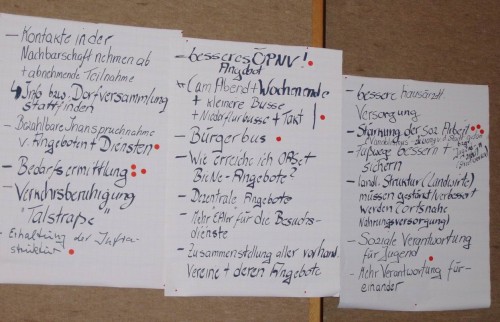 - Kontakte in der
Nachbarschaft nehmen ab
+ abnehmende Teilnahme
Info bzw. Dorfversammlung
stattfinden
- Bezahlbare Inanspruchnahme
v. Angeboten + Diensten
- Bedarfsermittlung
- Verkehrsberuhigung
"Talstraße"
- Erhaltung der Infra-
struktur
- besseres ÖPNV!
Angebot
(am Abend + Wochenende
+ kleinere Busse
+ Niederflurbusse + Takt
- Bürgerbus
- Wie erreiche ich OASe +
BieNe-Angebote?
- Dezentrale Angebote
- Mehr EAler für die Besuchs-
dienste
- Zusammenstellung aller vorhand.
Vereine + deren Angebote
- bessere hausärztl.
Versorgung
- Stärkung der soz. Arbeit
bessern +
sichern
- landl. Struktur (Landwirte)
müssen gestärkt/verbessert
werden (ortsnahe
Nahrungsversorgung)
- Soziale Verantwortung
für Jugend
- Mehr Verantwortung für-
einander